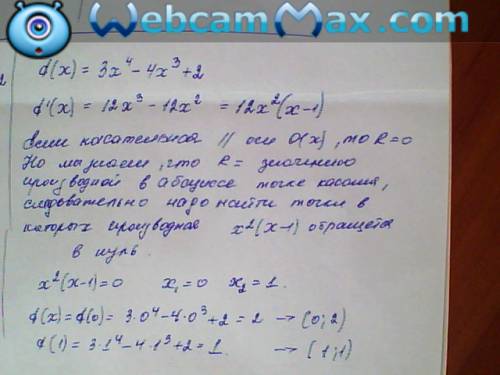 WebcamMax.com
f(x) = 3x⁴ - 4x³ + 2
f'(x) = 12x³ - 12x² = 12x²(x-1)
Если касательная // оси O(x), то k=0
Но мы знаем, что k = значению
производной в абсциссе точке касания,
следовательно надо найти точки в
которых производная x²(x-1) обращается
в нуль.
x²(x-1)=0 x₁=0 x₂=1.
f(x)=f(0)= 3·0⁴-4·0³+2=2 → (0;2)
f(1)=3·1⁴-4·1³+2=1. → (1;1)